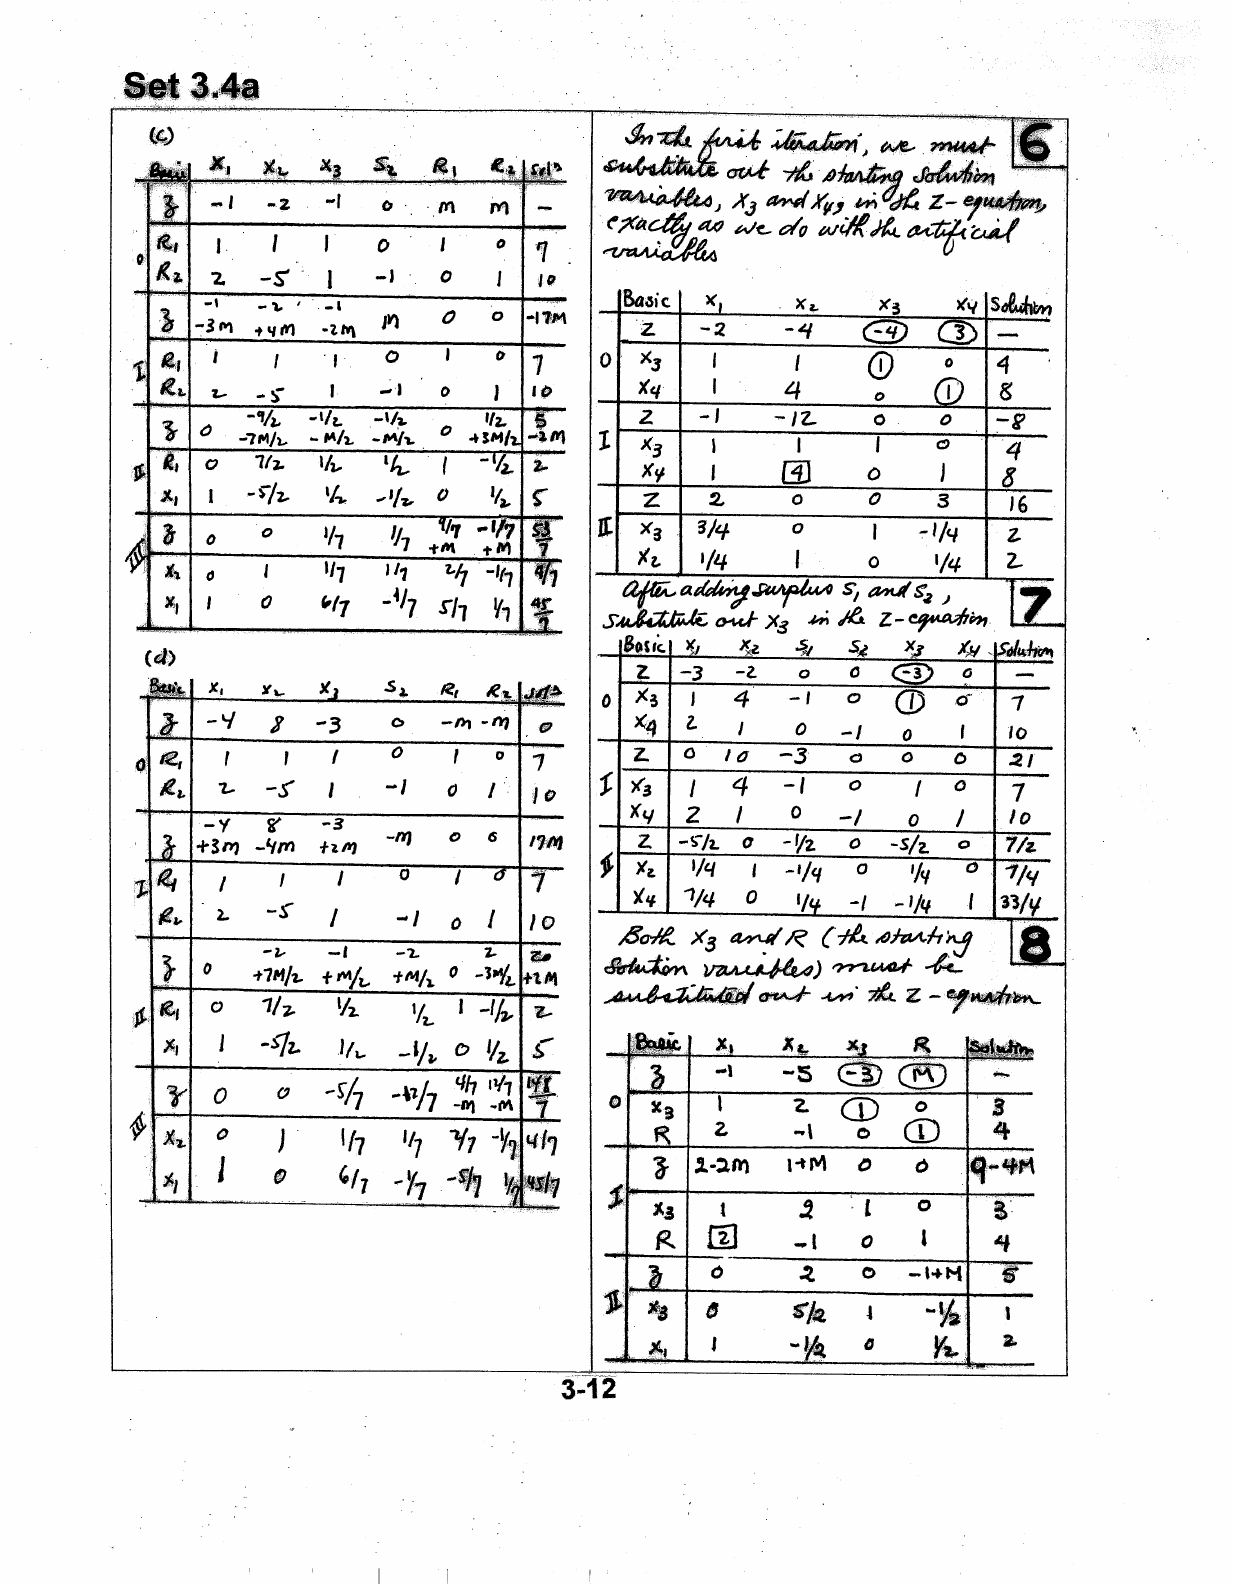 Set 3.4a
(c)
Basic x₁ x₂ x₃ S₂ R₁ R₂ Solⁿ
z -1 -2 -1 0 M M —
0 R₁ 1 1 1 0 1 0 7
R₂ 2 -5 1 -1 0 1 10
-1 -2 -1
z -3M +4M -2M M 0 0 -17M
I R₁ 1 1 1 0 1 0 7
R₂ 2 -5 1 -1 0 1 10
-9/2 -1/2 -1/2 1/2 5
z 0 -7M/2 -M/2 -M/2 0 +3M/2 -2M
II R₁ 0 7/2 1/2 1/2 1 -1/2 2
x₁ 1 -5/2 1/2 -1/2 0 1/2 5
9/7 -1/7 53
z 0 0 1/7 1/7 +M +M 7
III x₂ 0 1 1/7 1/7 2/7 -1/7 4/7
x₁ 1 0 6/7 -1/7 5/7 1/7 45/7
(d)
Basic x₁ x₂ x₃ S₂ R₁ R₂ solⁿ
z -4 8 -3 0 -M -M 0
0 R₁ 1 1 1 0 1 0 7
R₂ 2 -5 1 -1 0 1 10
-4 8 -3
z +3M -4M +2M -M 0 0 17M
I R₁ 1 1 1 0 1 0 7
R₂ 2 -5 1 -1 0 1 10
-2 -1 -2 2 20
z 0 +7M/2 +M/2 +M/2 0 -3M/2 +2M
II R₁ 0 7/2 1/2 1/2 1 -1/2 2
x₁ 1 -5/2 1/2 -1/2 0 1/2 5
4/7 12/7 148
z 0 0 -5/7 -12/7 -M -M 7
III x₂ 0 1 1/7 1/7 2/7 -1/7 4/7
x₁ 1 0 6/7 -1/7 -5/7 1/7 45/7
6
In the first iteration, we must
substitute out the starting solution
variables, x₃ and x₄, in the z-equation,
exactly as we do with the artificial
variables
Basic x₁ x₂ x₃ x₄ Solution
z -2 -4 -4 3 —
0 x₃ 1 1 1 0 4
x₄ 1 4 0 1 8
z -1 -12 0 0 -8
I x₃ 1 1 1 0 4
x₄ 1 4 0 1 8
z 2 0 0 3 16
II x₃ 3/4 0 1 -1/4 2
x₂ 1/4 1 0 1/4 2
7
After adding surplus S₁ and S₂,
substitute out x₃ in the z-equation
Basic x₁ x₂ S₁ S₂ x₃ x₄ Solution
z -3 -2 0 0 -3 0 —
0 x₃ 1 4 -1 0 1 0 7
x₄ 2 1 0 -1 0 1 10
z 0 10 -3 0 0 0 21
I x₃ 1 4 -1 0 1 0 7
x₄ 2 1 0 -1 0 1 10
z -5/2 0 -1/2 0 -5/2 0 7/2
II x₂ 1/4 1 -1/4 0 1/4 0 7/4
x₄ 7/4 0 1/4 -1 -1/4 1 33/4
8
Both x₃ and R (the starting
solution variables) must be
substituted out in the z-equation
Basic x₁ x₂ x₃ R Solution
z -1 -5 -3 M —
0 x₃ 1 2 1 0 3
R 2 -1 0 1 4
z 2-2M 1+M 0 0 9-4M
I x₃ 1 2 1 0 3
R 2 -1 0 1 4
z 0 2 0 -1+M 5
II x₃ 0 5/2 1 -1/2 1
x₁ 1 -1/2 0 1/2 2
3-12